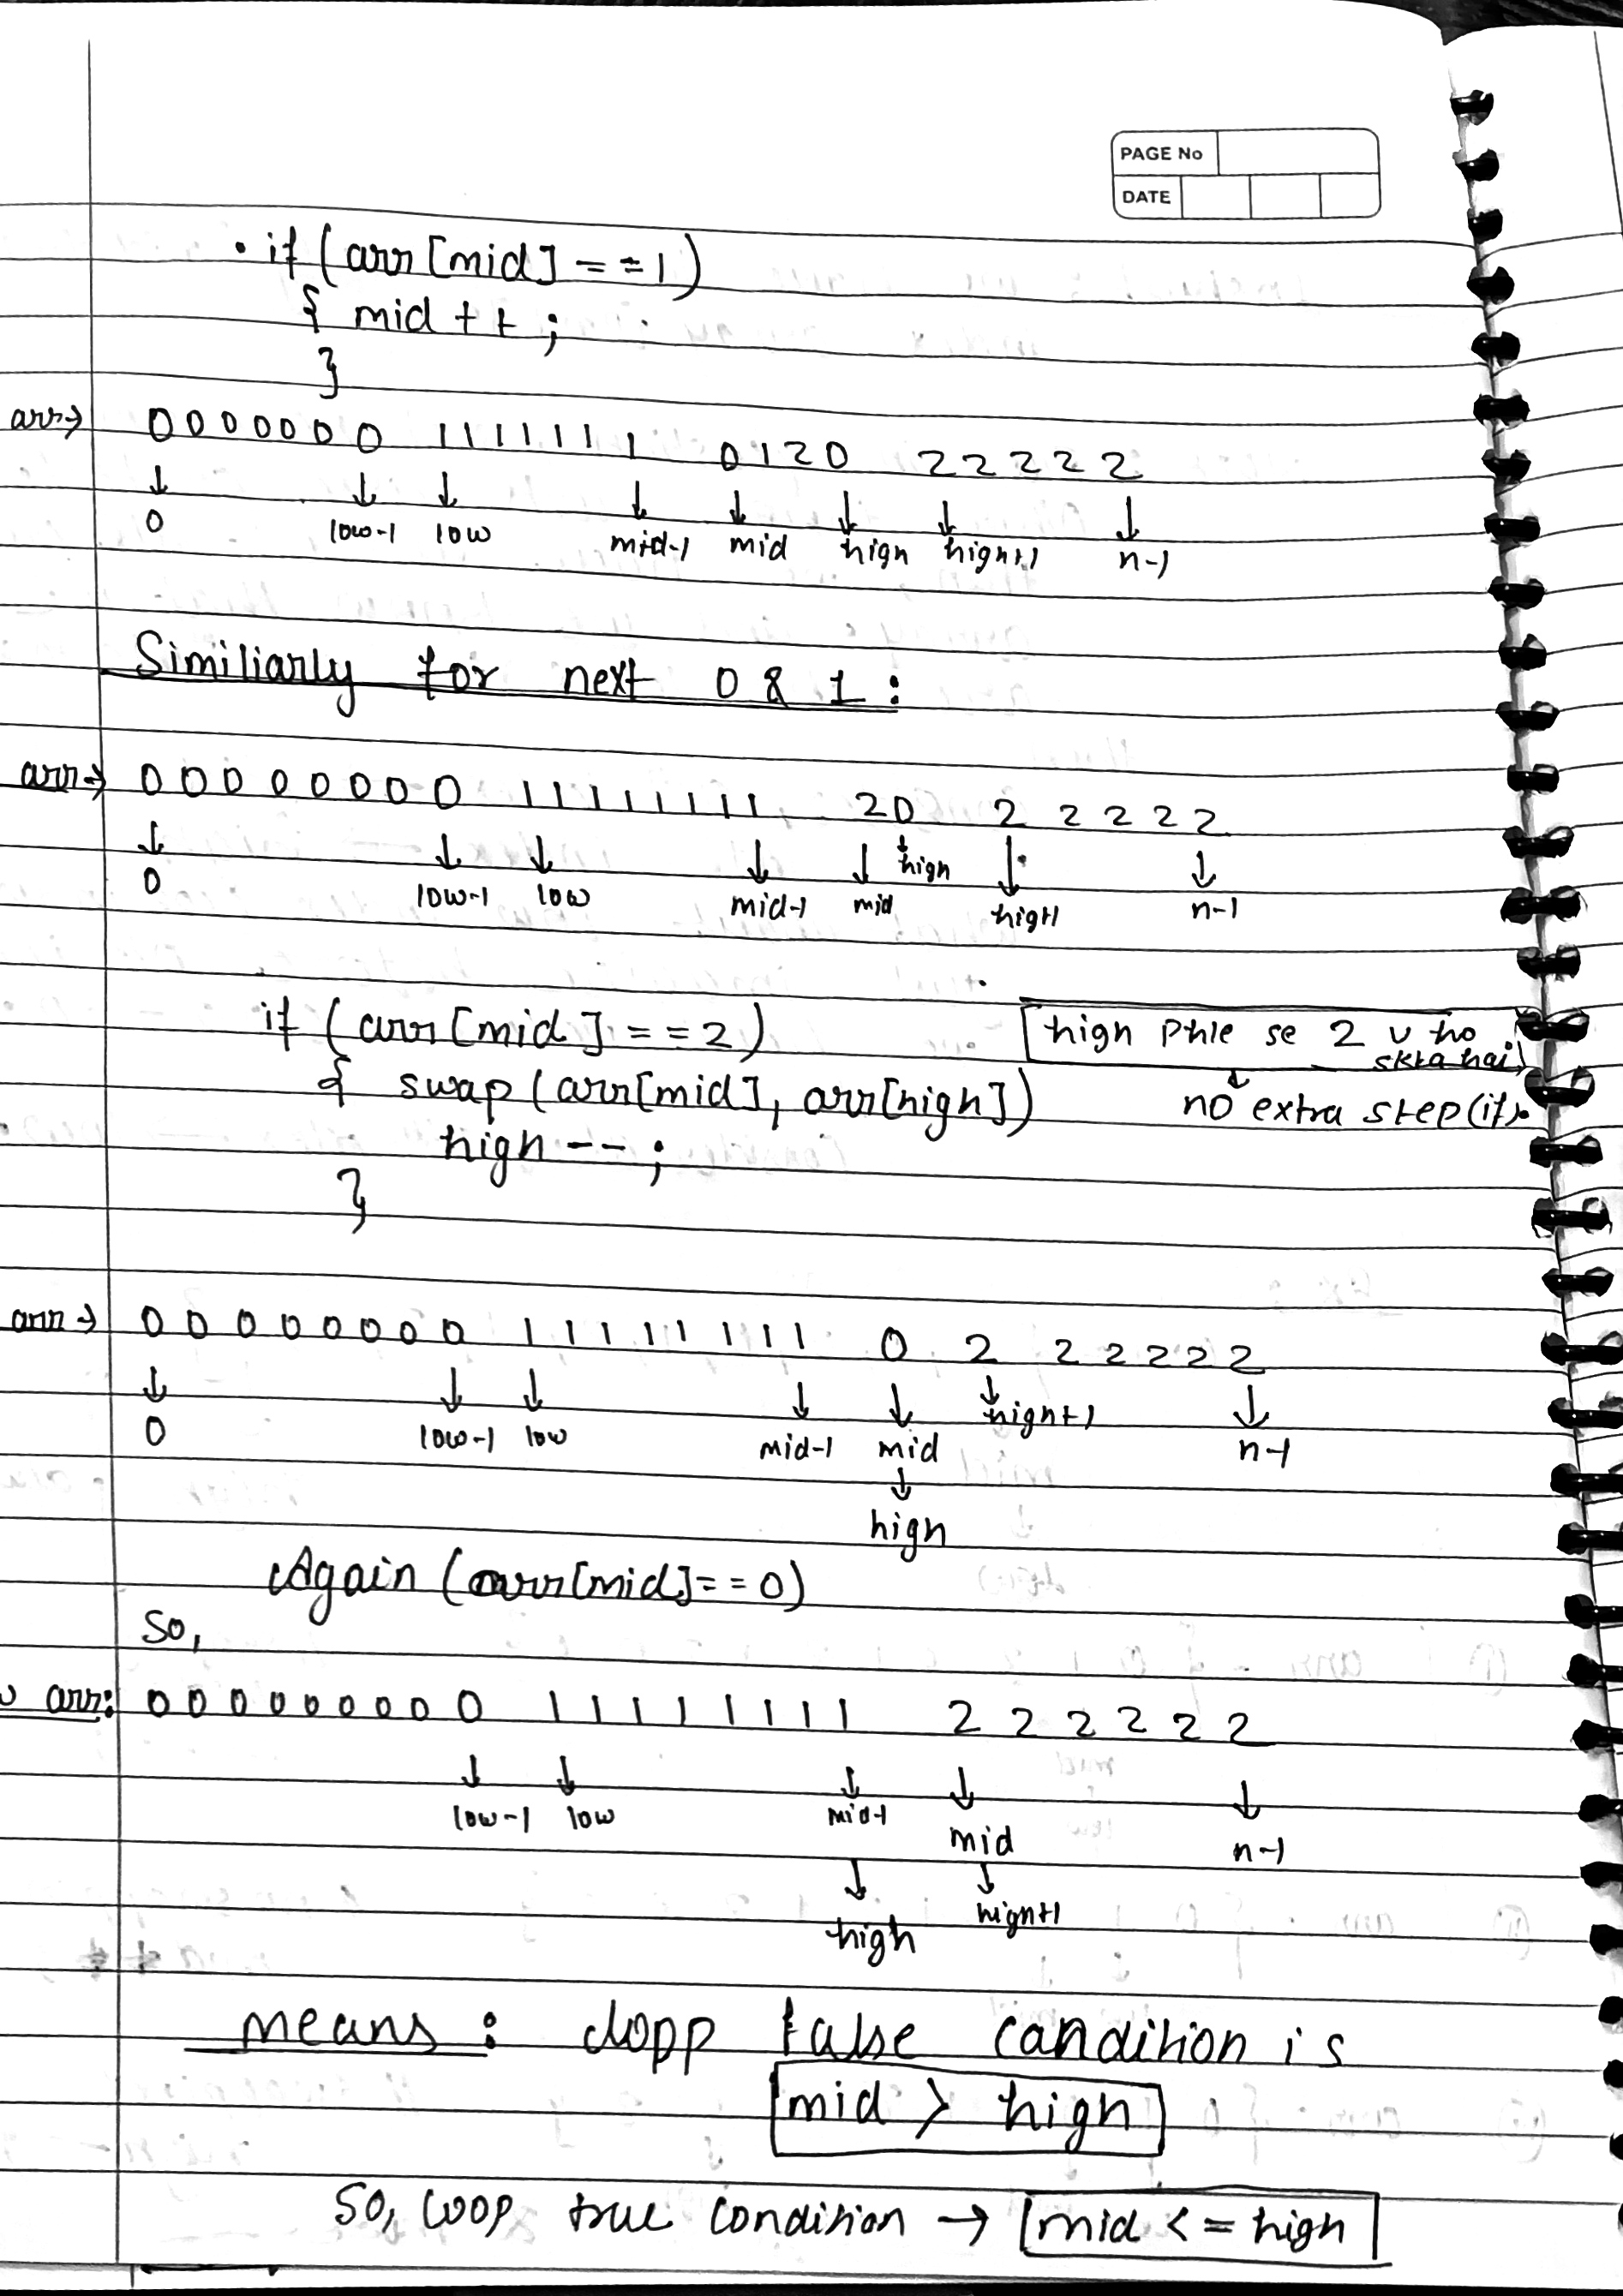 PAGE No
DATE
• if (arr[mid] == 1)
{ mid ++ ;
}
arr→ 0 0 0 0 0 0 0 1 1 1 1 1 1 1 0 1 2 0 2 2 2 2 2
↓ ↓ ↓ ↓ ↓ ↓ ↓ ↓
0 low-1 low mid-1 mid high high+1 n-1
Similiarly for next 0 & 1 :
arr→ 0 0 0 0 0 0 0 0 1 1 1 1 1 1 1 1 2 0 2 2 2 2 2
↓ ↓ ↓ ↓ ↓ ↓ ↓ ↓
0 low-1 low mid-1 mid high high+1 n-1
if (arr[mid] == 2)
{ swap (arr[mid], arr[high])
high -- ;
}
high phle se 2 v ho
skta hai
↓
no extra step (if).
arr→ 0 0 0 0 0 0 0 0 1 1 1 1 1 1 1 1 0 2 2 2 2 2 2
↓ ↓ ↓ ↓ ↓ ↓ ↓
0 low-1 low mid-1 mid high+1 n-1
↓
high
Again (arr[mid] == 0)
So,
arr: 0 0 0 0 0 0 0 0 0 1 1 1 1 1 1 1 1 2 2 2 2 2 2
↓ ↓ ↓ ↓ ↓
low-1 low mid-1 mid n-1
↓ ↓
high high+1
means : loop false candition is
mid > high
So, loop true condition → mid <= high